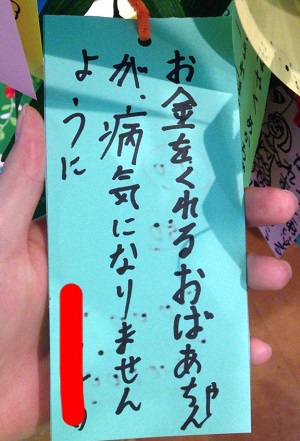 お金をくれるおばあちゃん
が、病気になりません
ように